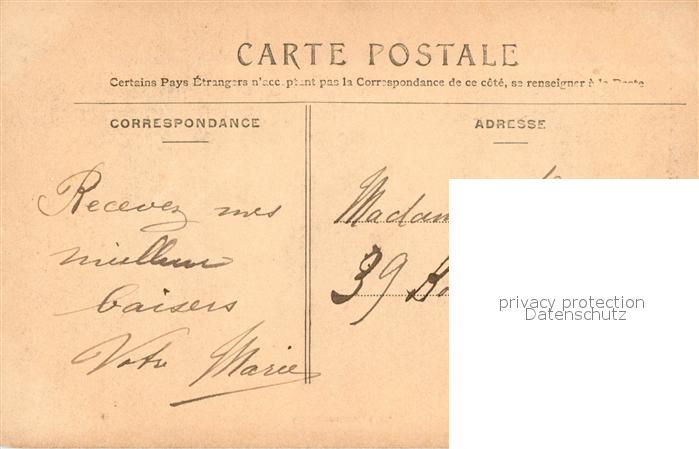 CARTE POSTALE
Certains Pays Étrangers n'acceptent pas la Correspondance de ce côté, se renseigner à la Poste
CORRESPONDANCE
Recevez mes
meilleurs
baisers
Votre Marie
ADRESSE
Madam
39
privacy protection
Datenschutz